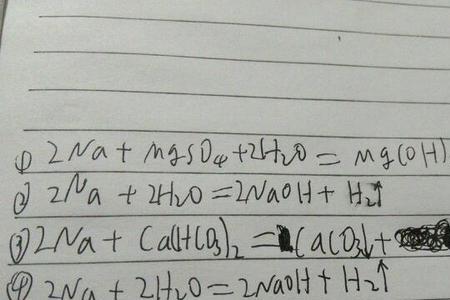 ① 2Na + MgSO₄ + 2H₂O = Mg(OH)
② 2Na + 2H₂O = 2NaOH + H₂↑
③ 2Na + Ca(HCO₃)₂ = CaCO₃↓ +
④ 2Na + 2H₂O = 2NaOH + H₂↑